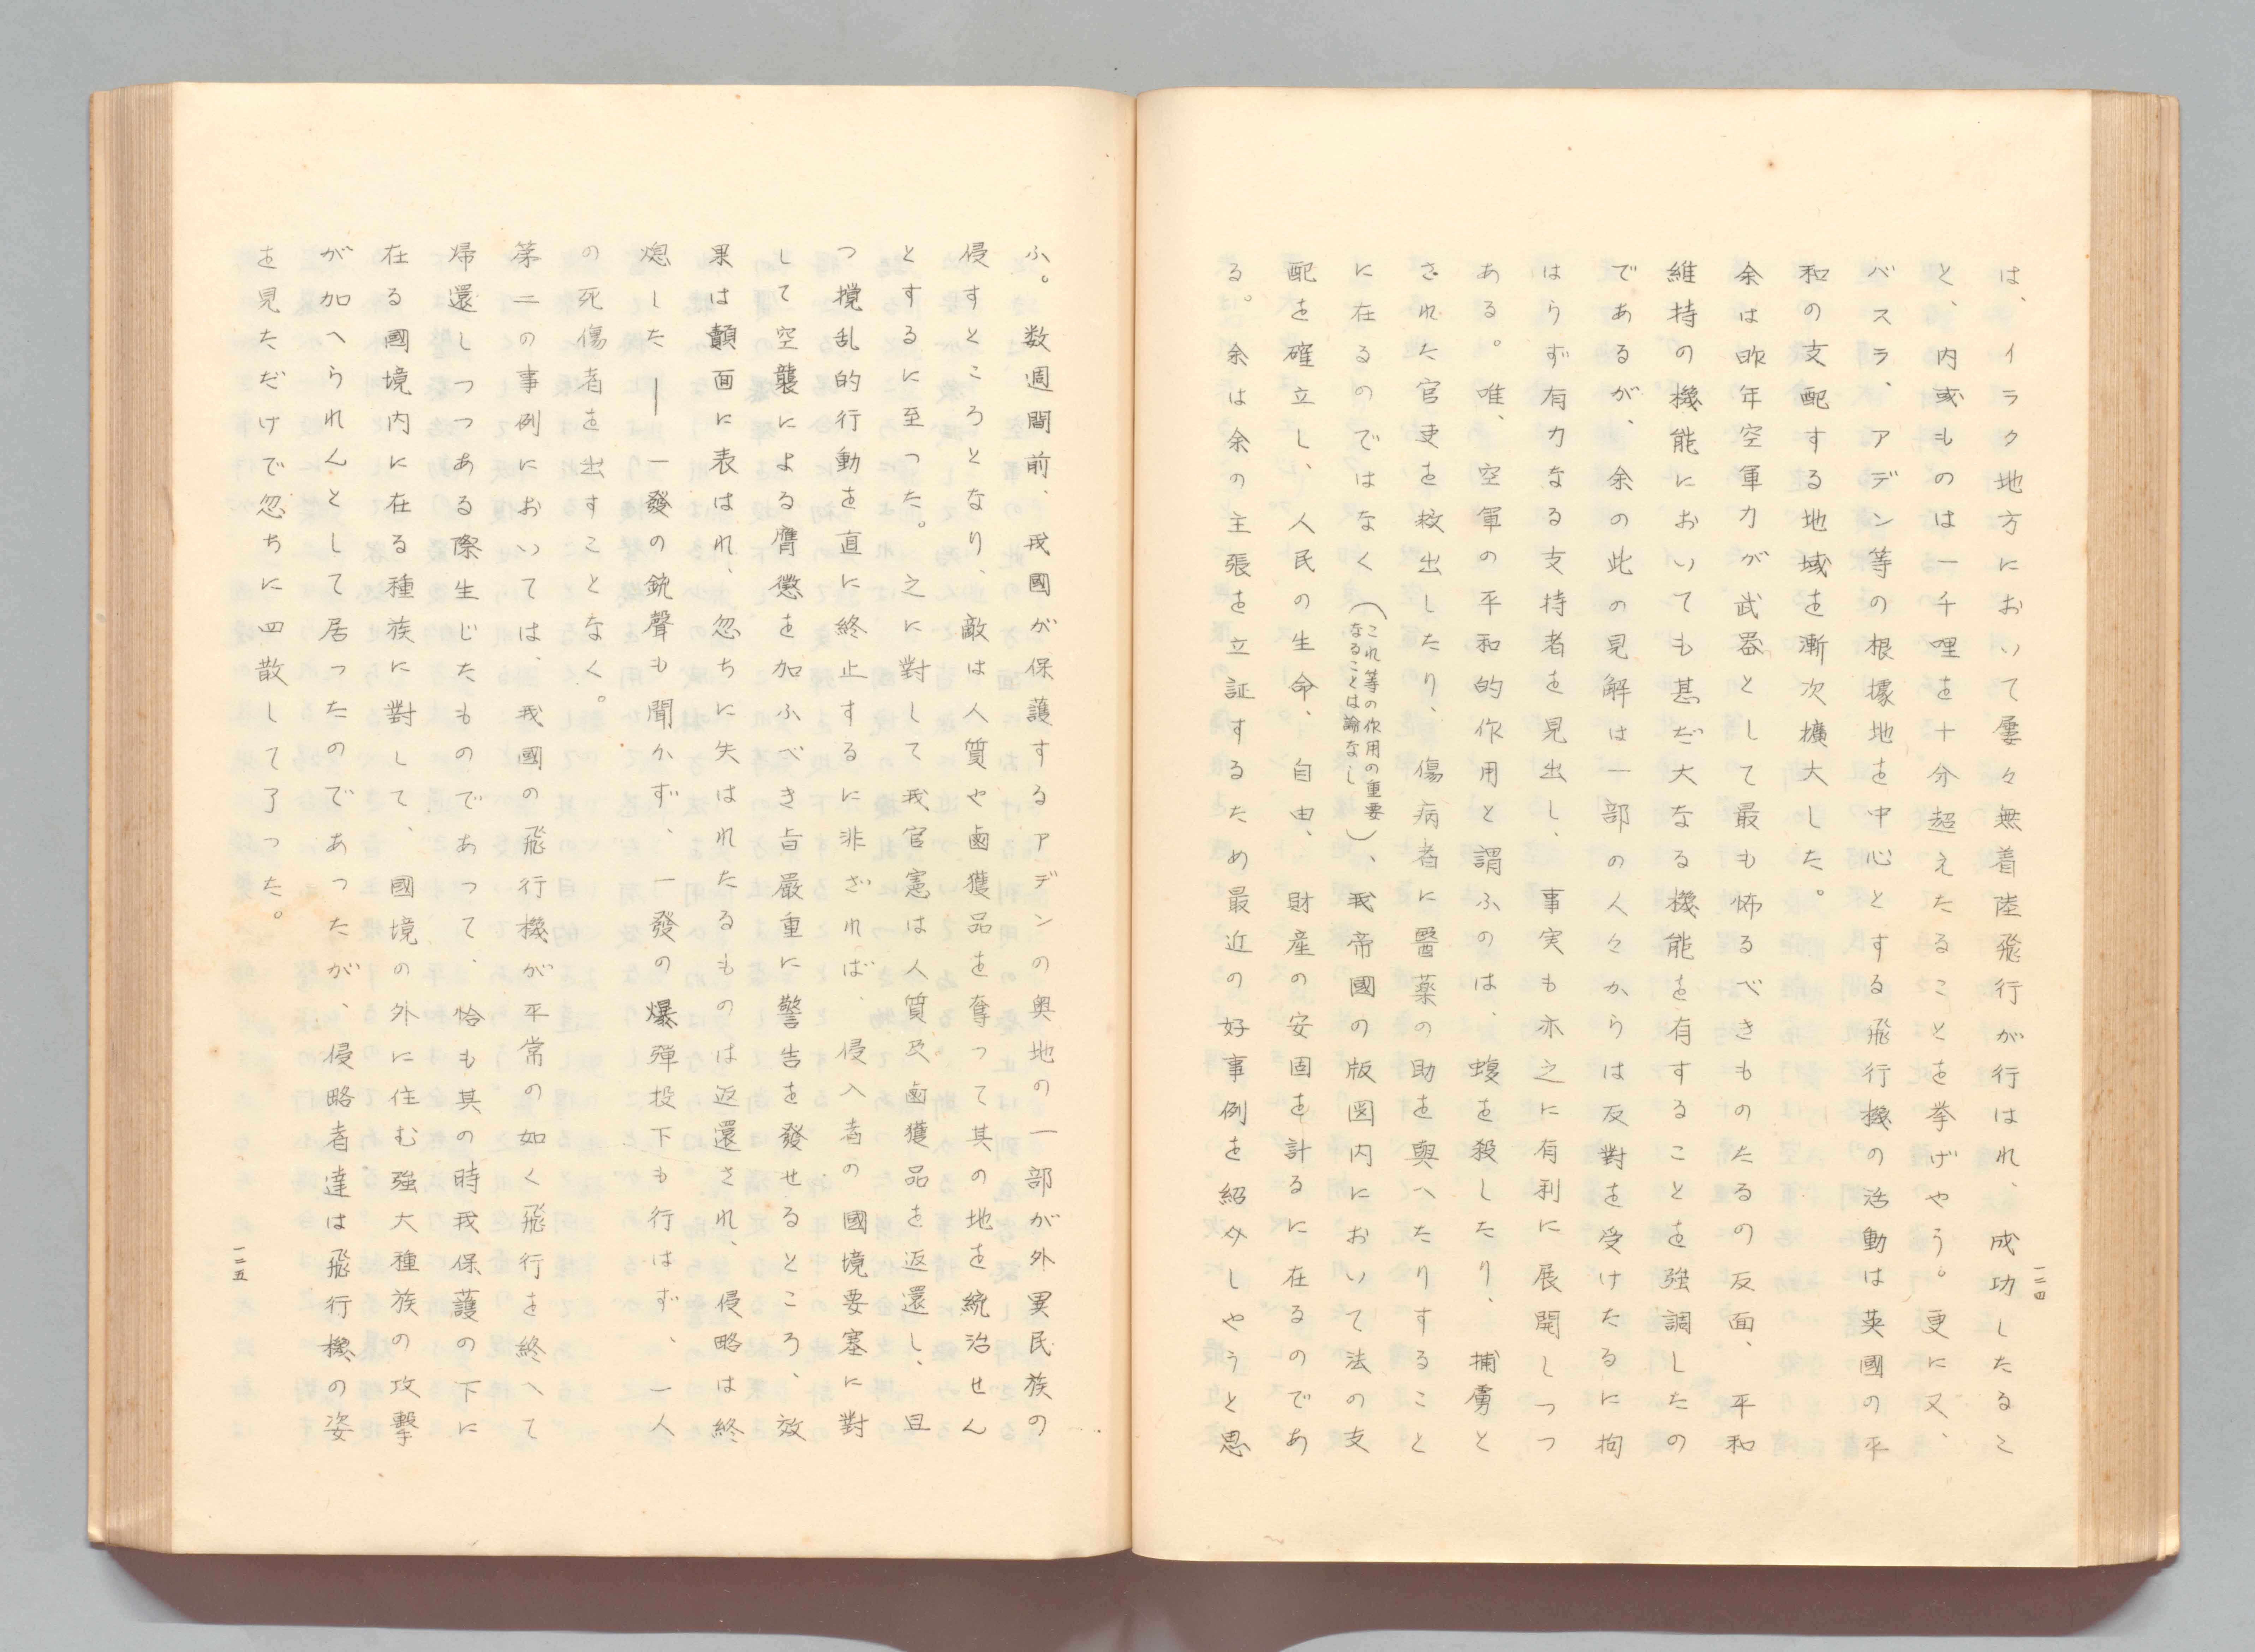 は、イラク地方において屢々無着陸飛行が行はれ、成功したるこ
と、内或ものは一千哩を十分超えたることを挙げやう。更に又、
バスラ、アデン等の根據地を中心とする飛行機の活動は英國の平
和の支配する地域を漸次擴大した。
余は昨年空軍力が武器として最も怖るべきものたるの反面、平和
維持の機能においても甚だ大なる機能を有することを強調したの
であるが、余の此の見解は一部の人々からは反對を受けたるに拘
はらず有力なる支持者を見出し、事実も亦之に有利に展開しつつ
ある。唯、空軍の平和的作用と謂ふのは、蝮を殺したり、捕虜と
された官吏を救出したり、傷病者に醫薬の助を與へたりすること
に在るのではなく（これ等の作用の重要なることは論なし）、我帝國の版図内において法の支
配を確立し、人民の生命、自由、財産の安固を計るに在るのであ
る。余は余の主張を立証するため最近の好事例を紹介しやうと思
一二四
ふ。数週間前、我國が保護するアデンの奥地の一部が外異民族の
侵すところとなり、敵は人質や鹵獲品を奪つて其の地を統治せん
とするに至つた。之に對して我官憲は人質及鹵獲品を返還し、且
つ攪乱的行動を直に終止するに非ざれば、侵入者の國境要塞に對
して空襲による膺懲を加ふべき旨嚴重に警告を發せるところ、效
果は顫面に表はれ、忽ちに失はれたるものは返還され、侵略は終
熄した―一發の銃聲も聞かず、一發の爆彈投下も行はず、一人
の死傷者を出すことなく。
第二の事例においては、我國の飛行機が平常の如く飛行を終へて
帰還しつつある際生じたものであつて、恰も其の時我保護の下に
在る國境内に在る種族に對して、國境の外に住む強大種族の攻撃
が加へられんとして居つたのであつたが、侵略者達は飛行機の姿
を見ただけで忽ちに四散して了つた。
一二五